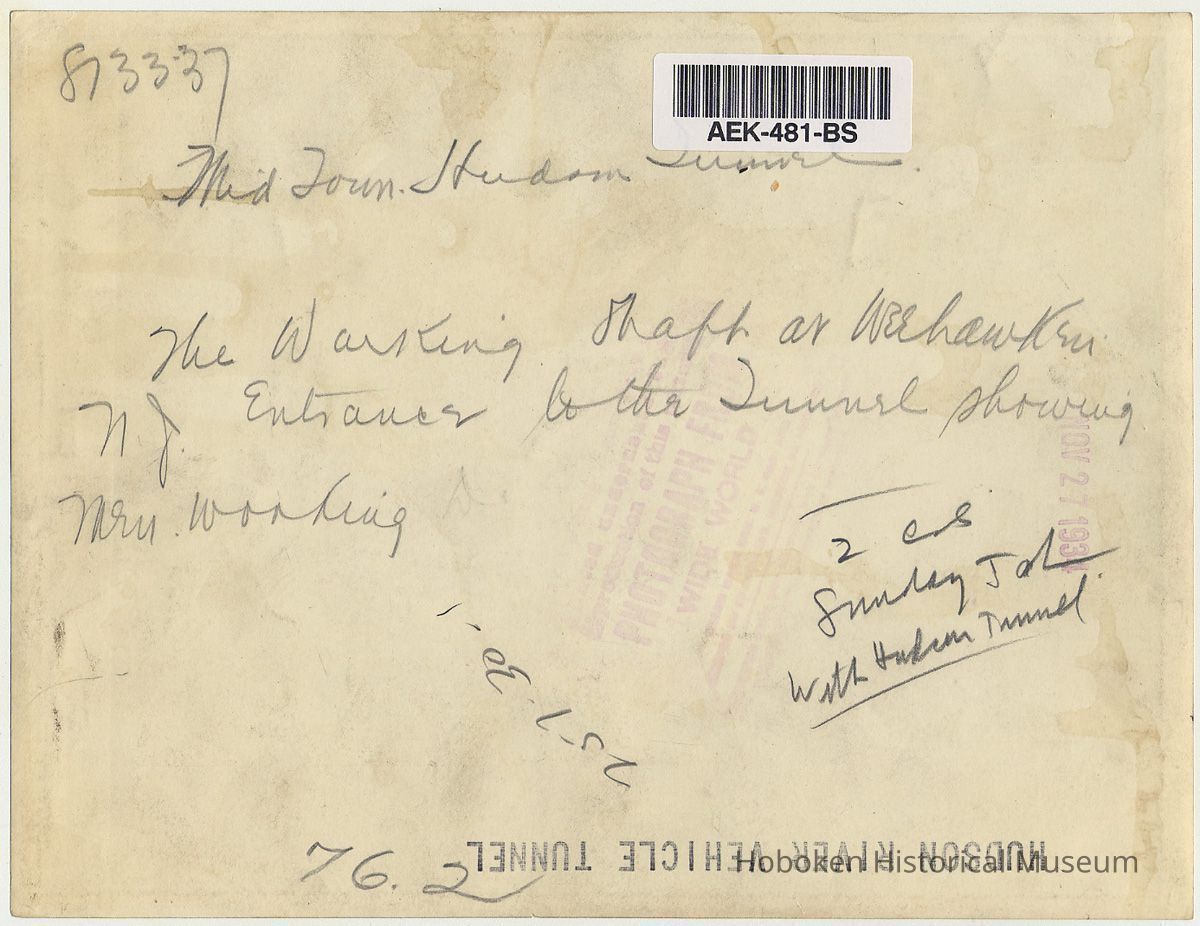 8733-37
AEK-481-BS
Mid Town Hudson Tunnel.
The Working Shaft at Weehawken
N.J. Entrance to the Tunnel showing
Men Working
PHOTOGRAPH FROM
WIDE WORLD
NOV 27 1934
2 cols
Sunday
With Hudson Tunnel
76.2
HUDSON RIVER VEHICLE TUNNEL
Hoboken Historical Museum